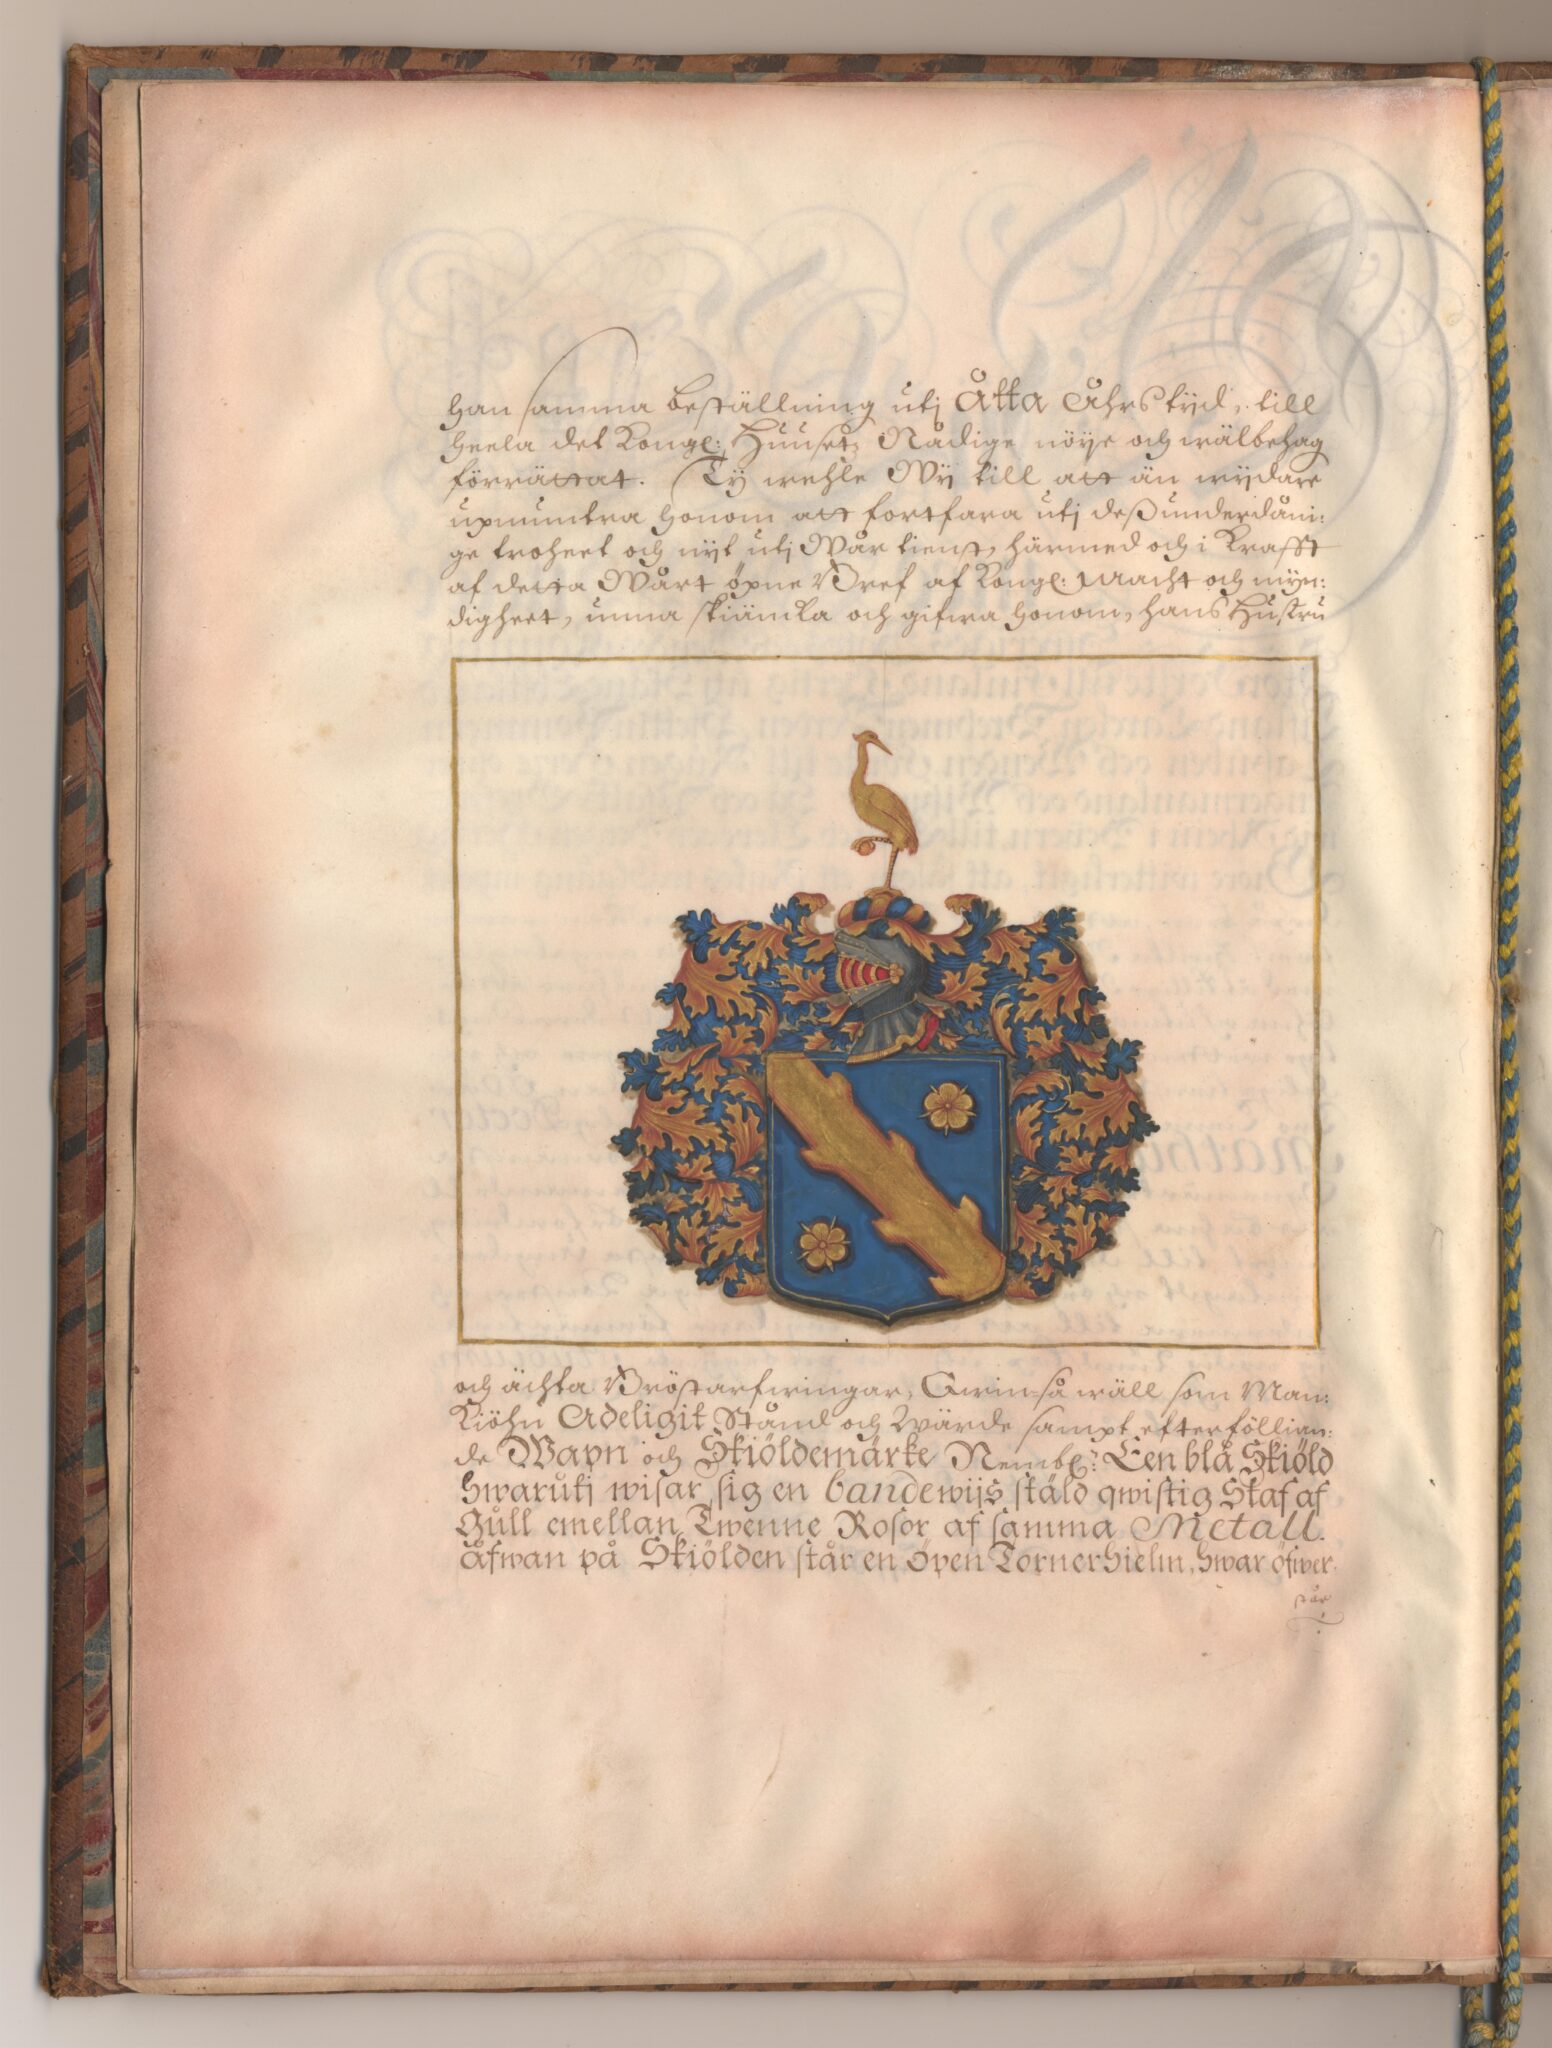 han samma beställning utj Åtta Åhrs tijd, till
heela det Kongl: Huusetz Nådige nöije och wälbehag
förrättat. Ty wehle Wij till att än wijdare
upmuntra honom att fortfara utj deß underdåni:
ge troheet och nijt utj Wår tienst, härmed och i Krafft
af detta Wårt öpne Bref af Kongl: Macht och myn:
digheet, unna skiäncka och gifwa honom, hans Hustru
och ächta Bröstarfwingar, Qwin- så wäll som Man:
Kiöhn Adeligit Stånd och Wärde sampt efterföllian:
de Wapn och Skiöldemärke Nembl: Een blå Skiöld
hwarutj wisar sig en bandewijs stäld qwistig Staf af
Gull emellan Twenne Rosor af samma Metall.
åfwan på Skiölden står en Öpen Tornerhielm, hwar öfwer
står